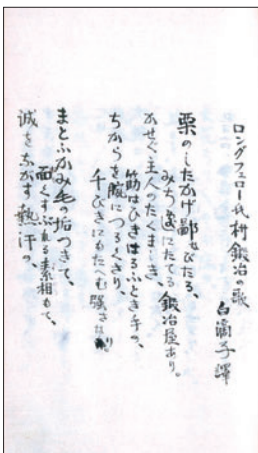 ロングフェロー氏村鍛冶の歌
白滴子譯
栗のしたかげ鄙もびたる、
みち邊にたてる鍛冶屋あり。
かせぐ主人のたくましき、
筋はひきはるふとき手の、
ちからを腕につるくさり、
千びきにもたへむ強さなり
まとふかみ毛の垢つきて、
面くすぶれる素相もて、
誠をあかす熱汗の、